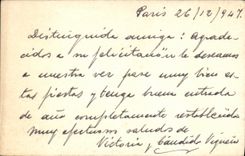 Paris 26/12/947
Distinguida amiga: agrade-
cidos a su felicitación le deseamos
a nuestra vez pase muy bien es-
tas fiestas y tenga buena entrada
de año completamente restablecida
muy afectuosos saludos de
Victoria y Candido